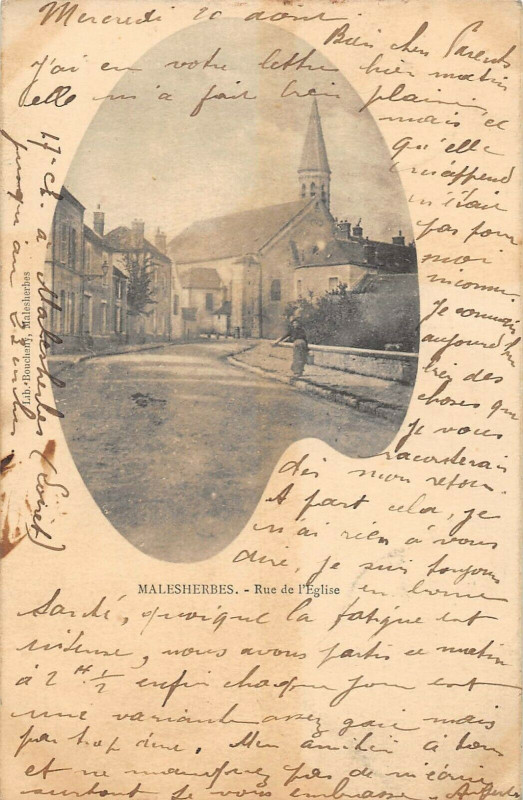 Mercredi 20 août
Bien chers Parents
J'ai eu votre lettre hier matin
elle m'a fait bien plaisir
mais ce
qu'elle
m'apprend
n'était
pas pour
moi
inconnu
Je connais
aujourd'hui
bien des
choses que
je vous
raconterai
dès mon retour.
A part cela, je
n'ai rien à vous
dire, je suis toujours
en bonne
MALESHERBES. - Rue de l'Eglise
Santé, quoique la fatigue est
intense, nous avons partis ce matin
à 2 H ½ enfin chaque jour est
une variante assez gaie mais
pas trop dure. Mes amitiés à tous
et ne manquez pas de m'écrire
surtout Je vous embrasse
Lib. Bouchery, Malesherbes
à Malesherbes (Loiret)
jusqu'au